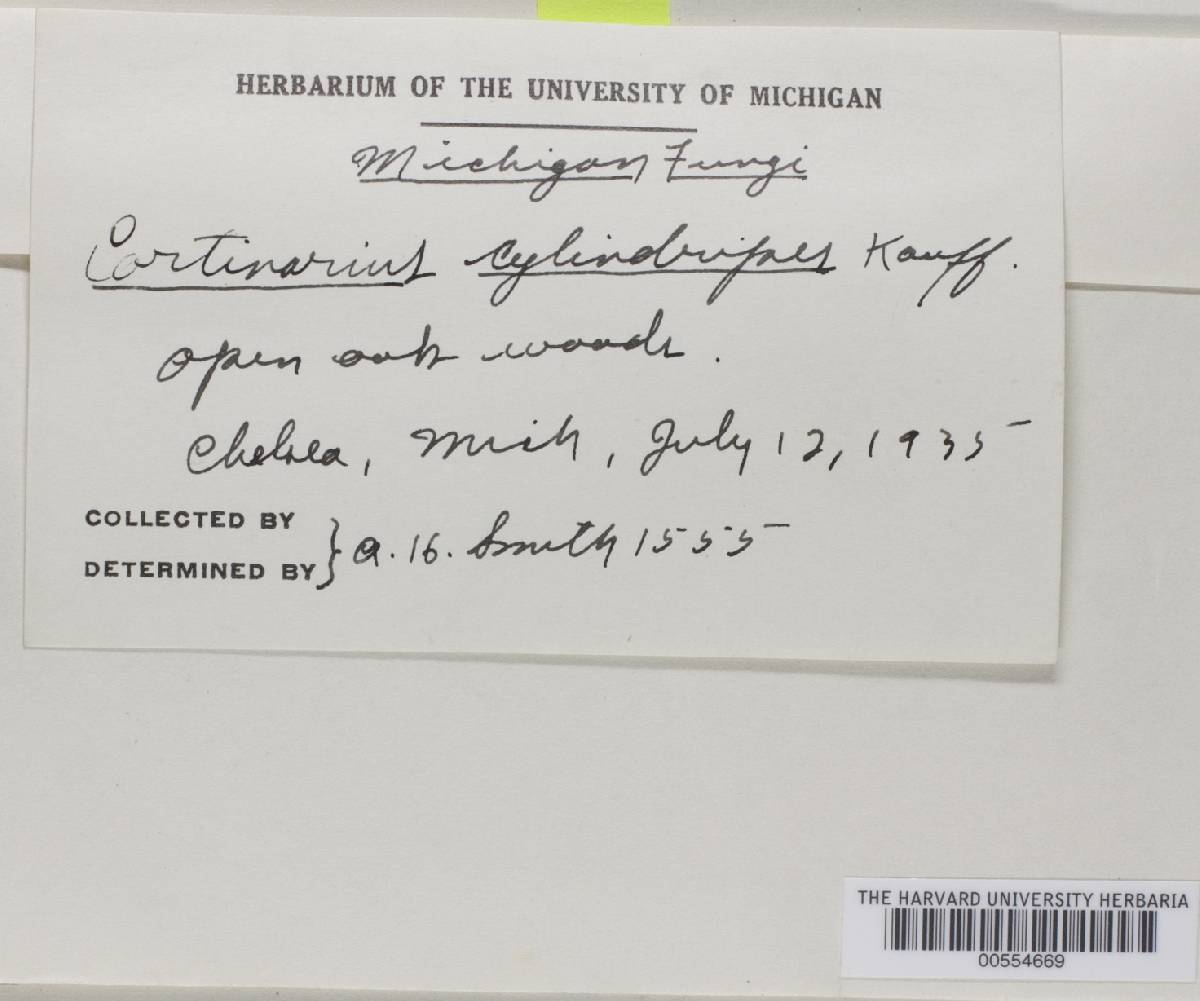 HERBARIUM OF THE UNIVERSITY OF MICHIGAN
Michigan Fungi
Cortinarius cylindripes Kauff.
open oak woods.
Chelsea, Mich, July 12, 1935
COLLECTED BY
DETERMINED BY } A. H. Smith 1555
THE HARVARD UNIVERSITY HERBARIA
00554669